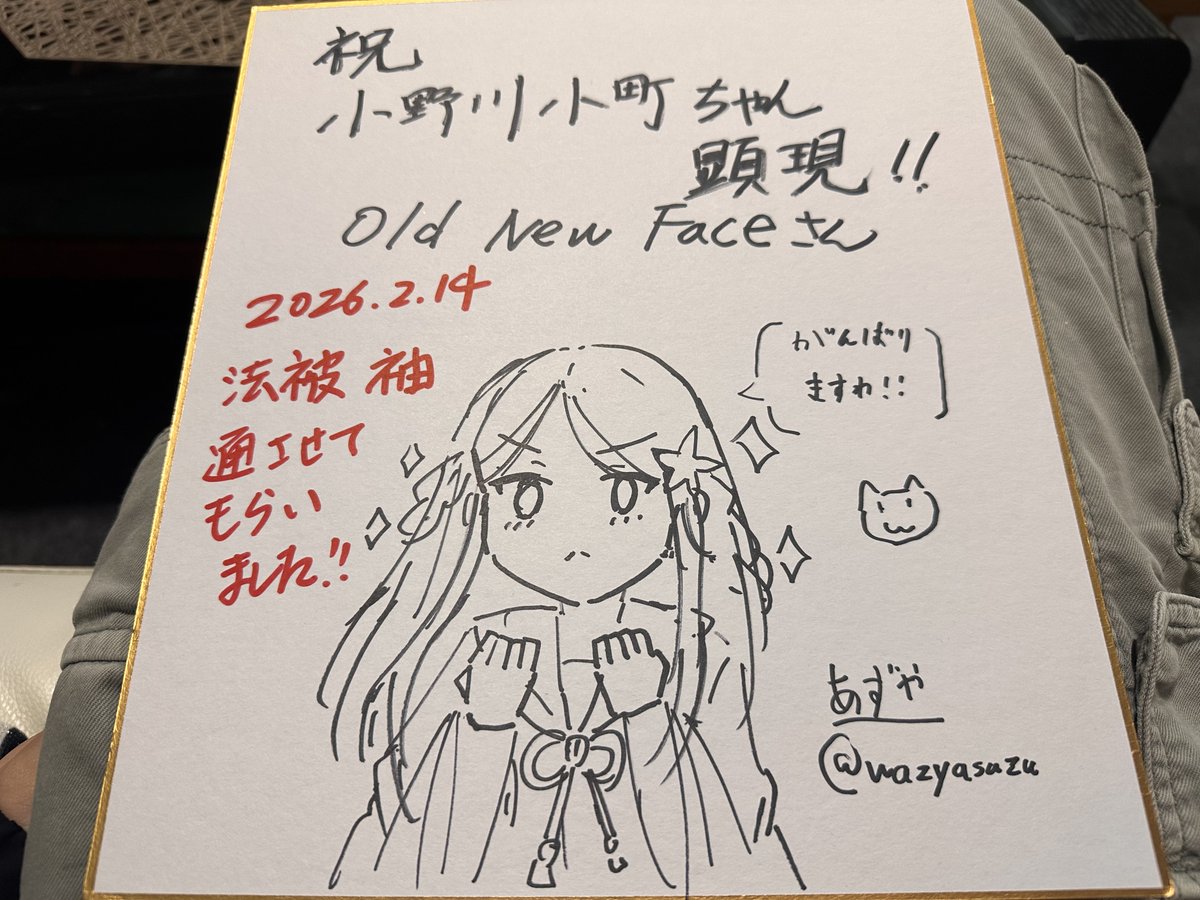 祝
小野川小町ちゃん
顕現!!
Old New Faceさん
2026.2.14
法被 袖
通させて
もらい
ました!!
がんばり
ますわ!!
あずや
@wazyasuzu